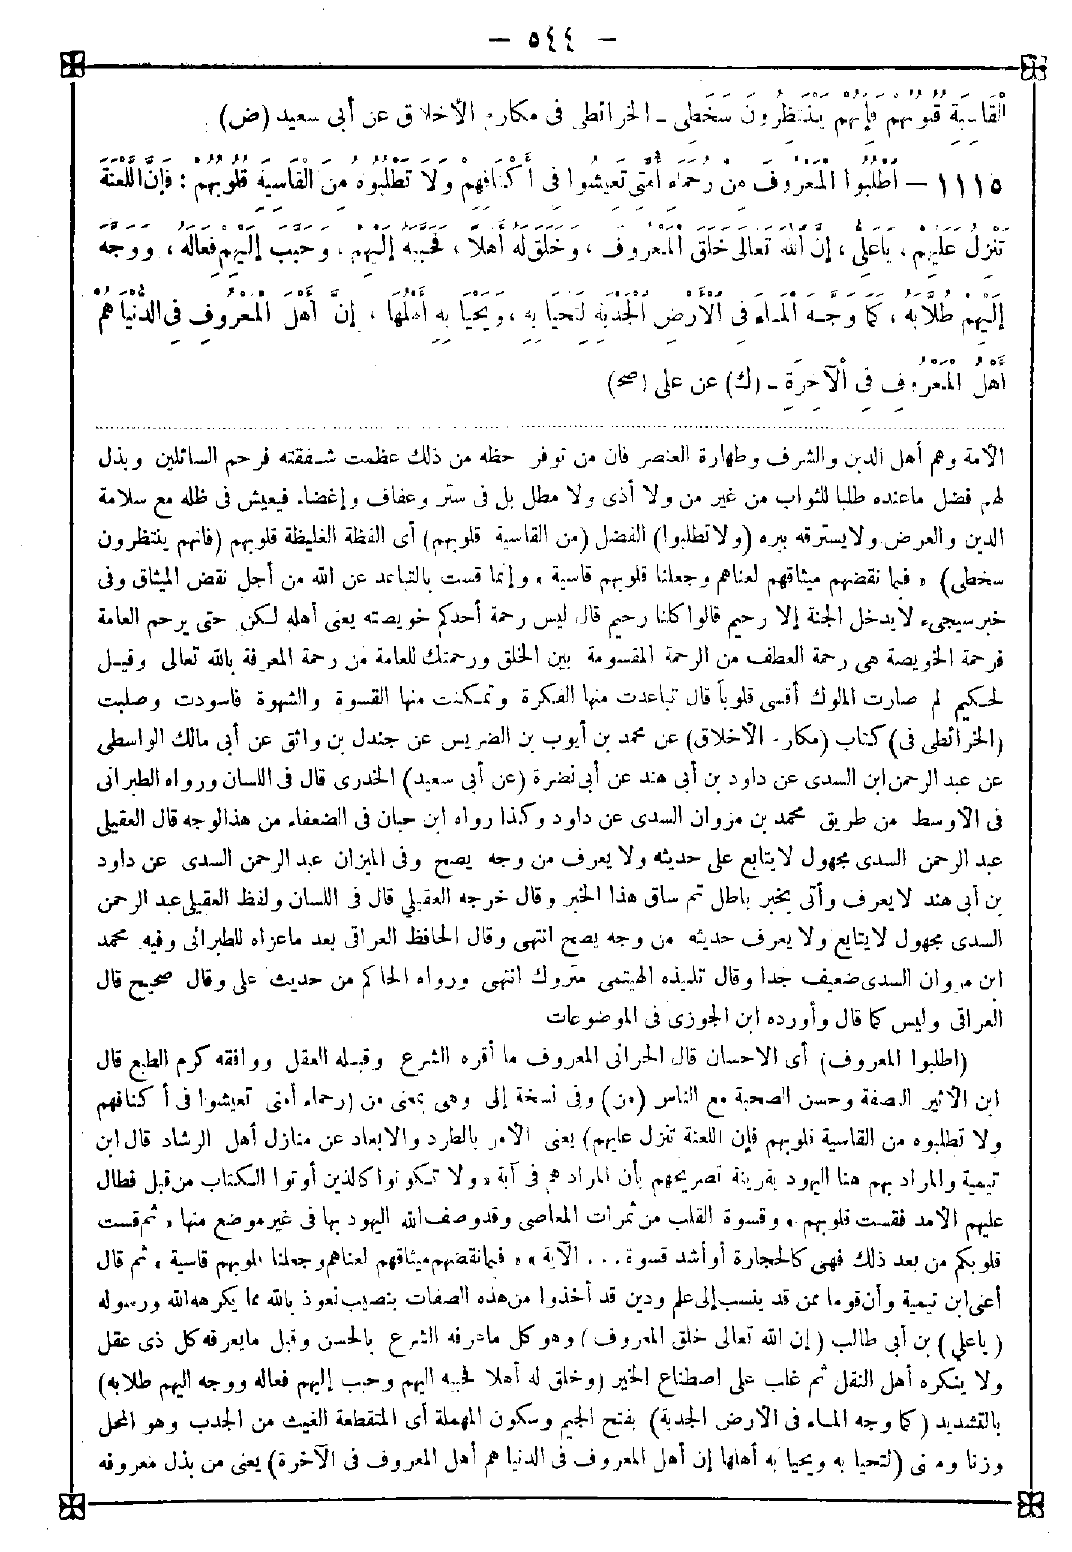 — ٥٤٤ —
الْقَاسِيَةِ قُلُوبُهُمْ فَإِنَّهُمْ يَنْتَظِرُونَ سَخَطِي - الخرائطى فى مكارم الأخلاق عن أبى سعيد (ض)
١١١٥ - اُطْلُبُوا الْمَعْرُوفَ مِنْ رُحَمَاءِ أُمَّتِي تَعِيشُوا فِي أَكْنَافِهِمْ وَلَا تَطْلُبُوهُ مِنَ الْقَاسِيَةِ قُلُوبُهُمْ ؛ فَإِنَّ اللَّعْنَةَ
تَنْزِلُ عَلَيْهِمْ ، يَا عَلِيُّ ، إِنَّ اللَّهَ تَعَالَى خَلَقَ الْمَعْرُوفَ ، وَخَلَقَ لَهُ أَهْلًا ، فَحَبَّبَهُ إِلَيْهِمْ ، وَحَبَّبَ إِلَيْهِمْ فِعَالَهُ ، وَوَجَّهَ
إِلَيْهِمْ طُلَّابَهُ ، كَمَا وَجَّهَ الْمَاءَ فِي الْأَرْضِ الْجَدْبَةِ لِتَحْيَا بِهِ ، وَيَحْيَا بِهِ أَهْلُهَا ، إِنَّ أَهْلَ الْمَعْرُوفِ فِي الدُّنْيَا هُمْ
أَهْلُ الْمَعْرُوفِ فِي الْآخِرَةِ - (ك) عن على (صح)
الأمة وهم أهل الدين والشرف وطهارة العنصر فان من توفر حظه من ذلك عظمت شفقته فرحم السائلين وبذل
لهم فضل ماعنده طلبا للثواب من غير من ولا أذى ولا مطل بل فى ستر وعفاف وإغضاء فيعيش فى ظله مع سلامة
الدين والعرض ولا يسترقه ببره (ولا تطلبوا) الفضل (من القاسية قلوبهم) أى الفظة الغليظة قلوبهم (فانهم ينتظرون
سخطى) « فبما نقضهم ميثاقهم لعناهم وجعلنا قلوبهم قاسية » وإنما قست بالتباعد عن الله من أجل نقض الميثاق وفى
خبر سيجىء لا يدخل الجنة إلا رحيم قالوا كلنا رحيم قال ليس رحمة أحدكم خويصته يعنى أهله لكن حتى يرحم العامة
فرحمة الخويصة هى رحمة العطف من الرحمة المقسومة بين الخلق ورحمتك للعامة من رحمة المعرفة بالله تعالى وقيل
لحكيم لم صارت الملوك أقسى قلوبا قال تباعدت منها الفكرة وتمكنت منها القسوة والشهوة فاسودت وصلبت
(الخرائطى فى) كتاب (مكارم الأخلاق) عن محمد بن أيوب بن الضريس عن جندل بن واثق عن أبى مالك الواسطى
عن عبد الرحمن ابن السدى عن داود بن أبى هند عن أبى نضرة (عن أبى سعيد) الخدرى قال فى اللسان ورواه الطبرانى
فى الأوسط من طريق محمد بن مروان السدى عن داود وكذا رواه ابن حبان فى الضعفاء من هذا الوجه قال العقيلى
عبد الرحمن السدى مجهول لا يتابع على حديثه ولا يعرف من وجه يصح وفى الميزان عبد الرحمن السدى عن داود
بن أبى هند لا يعرف وأتى بخبر باطل ثم ساق هذا الخبر وقال خرجه العقيلى قال فى اللسان ولفظ العقيلى عبد الرحمن
السدى مجهول لا يتابع ولا يعرف حديثه من وجه يصح انتهى وقال الحافظ العراقى بعد ماعزاه للطبرانى وفيه محمد
ابن مروان السدى ضعيف جدا وقال تلميذه الهيتمى متروك انتهى ورواه الحاكم من حديث على وقال صحيح قال
العراقى وليس كما قال وأورده ابن الجوزى فى الموضوعات
(اطلبوا المعروف) أى الاحسان قال الحرانى المعروف ما أقره الشرع وقبله العقل ووافقه كرم الطبع قال
ابن الأثير النصفة وحسن الصحبة مع الناس (من) وفى نسخة إلى وهى بمعنى من (رحماء أمتى تعيشوا فى أكنافهم
ولا تطلبوه من القاسية قلوبهم فإن اللعنة تنزل عليهم) يعنى الأمر بالطرد والابعاد عن منازل أهل الرشاد قال ابن
تيمية والمراد بهم هنا اليهود بقرينة تصريحهم بأن المراد هم فى آية « ولا تكونوا كالذين أوتوا الكتاب من قبل فطال
عليهم الأمد فقست قلوبهم » وقسوة القلب من ثمرات المعاصى وقد وصف الله اليهود بها فى غير موضع منها « ثم قست
قلوبكم من بعد ذلك فهى كالحجارة أو أشد قسوة ... الآية » « فبما نقضهم ميثاقهم لعناهم وجعلنا قلوبهم قاسية » ثم قال
أعنى ابن تيمية وأن قوما ممن قد ينسب إلى علم ودين قد أخذوا من هذه الصفات بنصيب نعوذ بالله مما يكرهه الله ورسوله
(ياعلى) بن أبى طالب (إن الله تعالى خلق المعروف) وهو كل ماعرفه الشرع بالحسن وقبل مايعرفه كل ذى عقل
ولا ينكره أهل النقل ثم غلب على اصطناع الخير (وخلق له أهلا فحببه اليهم وحبب إليهم فعاله ووجه اليهم طلابه)
بالتشديد (كما وجه الماء فى الأرض الجدبة) بفتح الجيم وسكون المهملة أى المنقطعة الغيث من الجدب وهو المحل
وزنا ومعنى (لتحيا به ويحيا به أهلها إن أهل المعروف فى الدنيا هم أهل المعروف فى الآخرة) يعنى من بذل معروفه